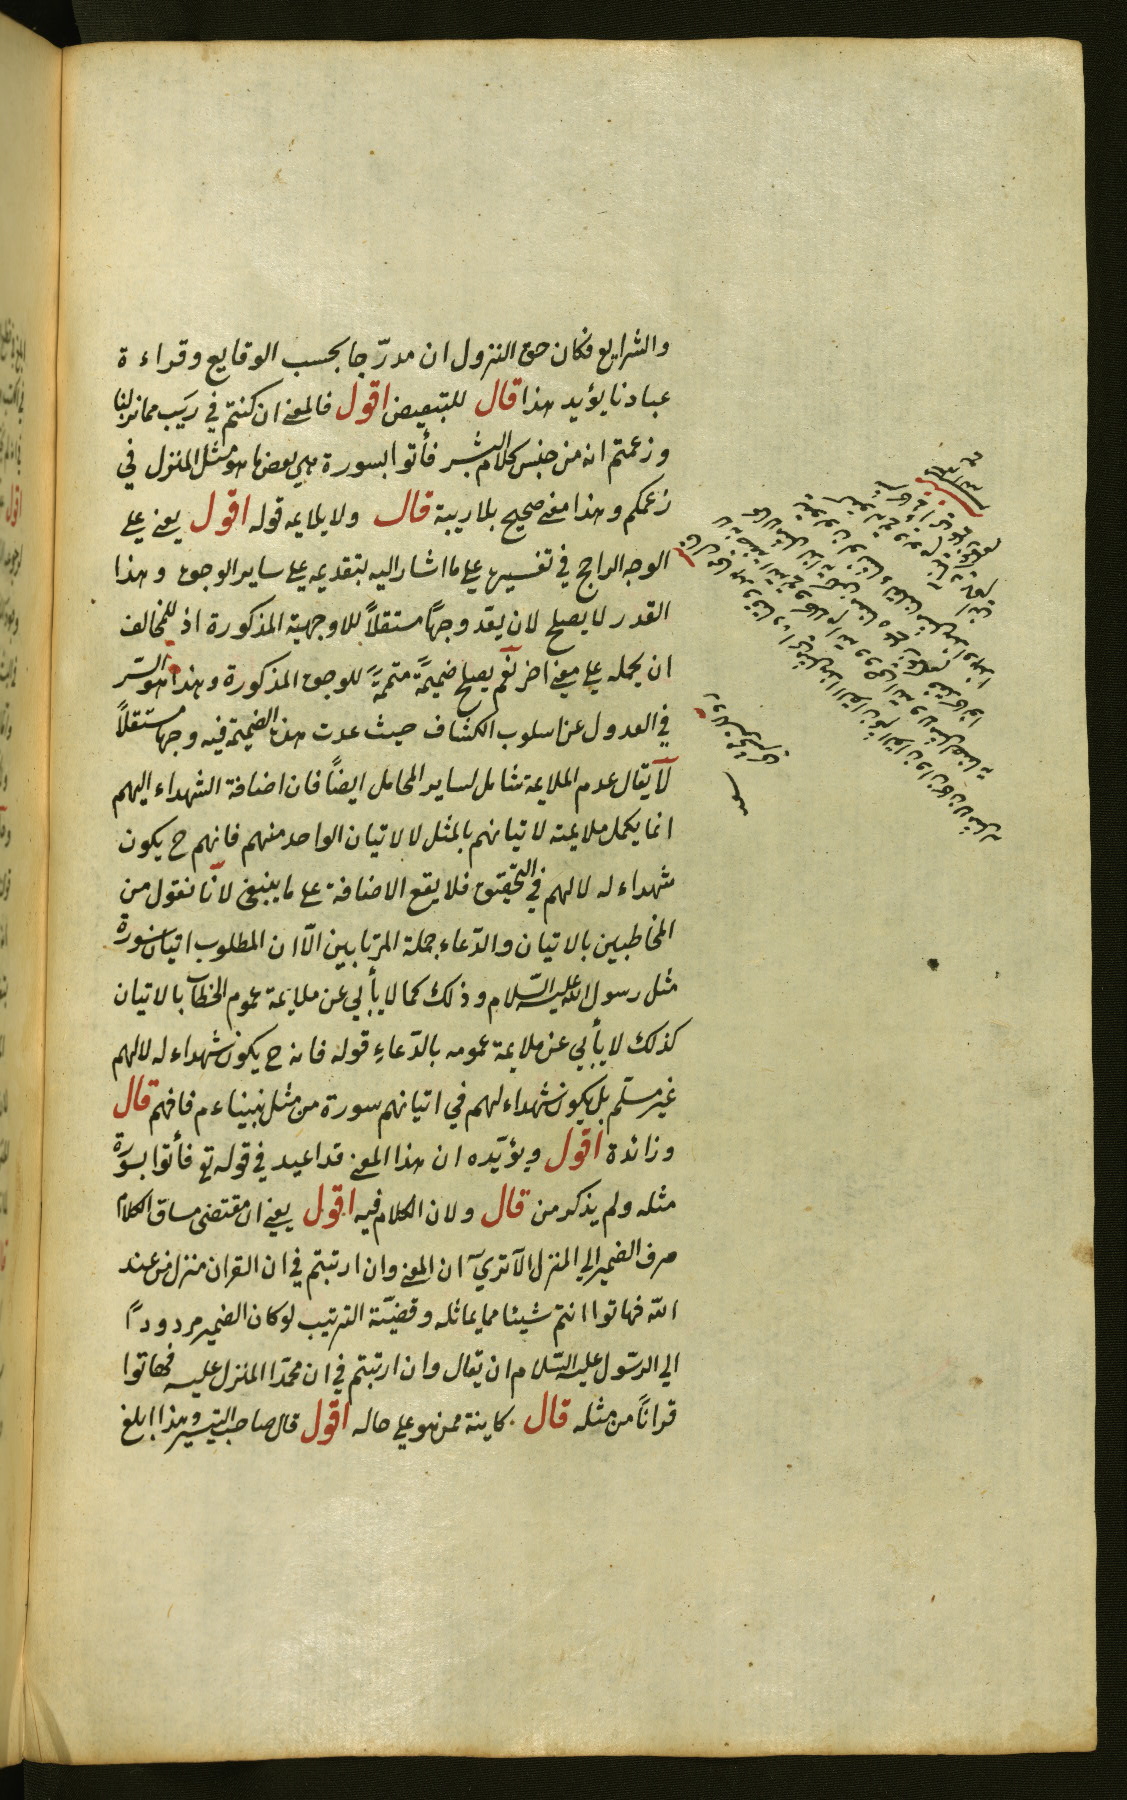 والشرايع فكان حق النزول ان مدرّجا بحسب الوقايع وقراءة
عبادنا يؤيد هذا قال للتبعيض اقول فالمعنى ان كنتم في ريب مما نزلنا
وزعمتم انه من جنس كلام البشر فأتوا بسورة هي بعض ما هو مثل المنزل في
زعمكم وهذا معنى صحيح بلا ريبة قال ولا يلايمه قوله اقول يعنى على
الوجه الراجح في تفسيرها على ما اشار اليه بتقديمه على ساير الوجوه وهذا
القدر لا يصلح لان يعدّ وجهًا مستقلاً للاوجهية المذكورة اذ للمخالف
ان يحمله على معنى اخر نعم يصلح ضميمةً متممةً للوجوه المذكورة وهذا هو السّر
في العدول عن اسلوب الكشاف حيث عدت هذه الضميمة فيه وجها مستقلاً
لا يقال عدم الملايمة شامل لساير المحامل ايضًا فان اضافة الشهداء اليهم
انما يكمل ملايمته لاتيانهم بالمثل لا لاتيان الواحد منهم فانهم ح يكون
شهداء له لا لهم في التحقيق فلا يقع الاضافة على ما ينبغى لانّا نقول من
المخاطبين بالاتيان والدّعاء جملة المرتابين الّا ان المطلوب اتيان سورة
مثل رسول الله عليه السّلام وذلك كما لا يأبي عن ملايمة عموم الخطاب بالاتيان
كذلك لا يأبي عن ملايمة عمومه بالدّعاء قوله فانه ح يكون شهداء له لا لهم
غير مسلّم بل يكون شهداء لهم في اتيانهم سورة من مثل نبيناء م فافهم قال
وزائدة اقول ويؤيّده ان هذا المعنى قد اعيد في قوله تع فأتوا بسورة
مثله ولم يذكر من قال ولان الكلام فيه اقول يعنى ان مقتضى مساق الكلام
صرف الضمير الي المنزل الا تري ان المعنى وان ارتبتم في ان القران منزل من عند
الله فهاتوا انتم شيئا مما يماثله وقضيّة الترتيب لو كان الضمير مردودًا
الي الرسول عليه السّلام ان يقال وان ارتبتم في ان محمّدا المنزل عليه فهاتوا
قرانًا من مثله قال كاينة ممن هو على حاله اقول قال صاحب التيسير وهذا ابلغ